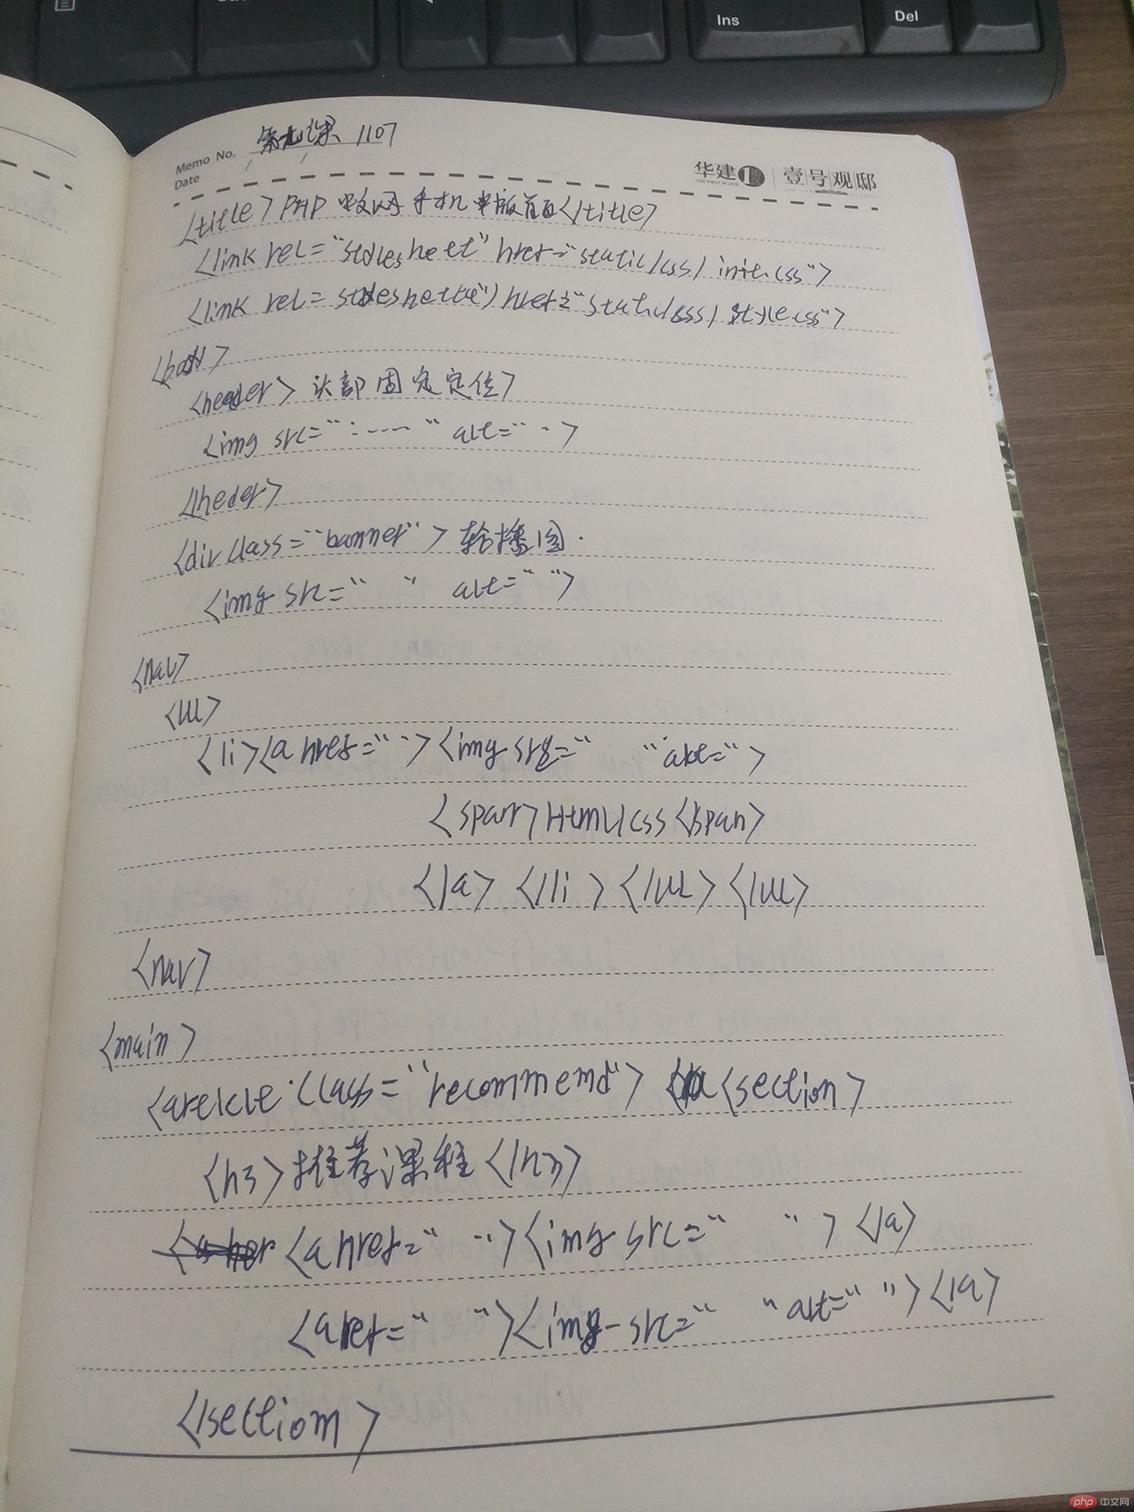 Ins
Del
Memo No. 第九课 1107
Date
华建 1 壹号观邸
<title> PHP 中文网手机 版首页</title>
<link rel="stylesheett" href="static/css/init.css">
<link rel= stylesheette" href="static/css/style.css">
<body>
<header> 头部固定定位>
<img src=" :---- " alt=" - >
</heder>
<div class="banner"> 轮播图.
<img src=" " alt=" ">
<nav>
<ul>
<li><a href=" "><img src=" " alt=" >
<span>Html/css</span>
</a> </li> </ul> </ul>
<nav>
<main>
<artclcle class="recommemd"> <section>
<h3>推荐课程</h3>
<a href=" "><img src=" "> </a>
<a ref=" "><img src=" " alt=" "></a>
</sectiom>
php 中文网